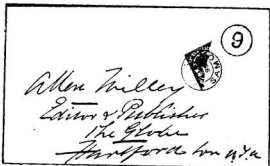 9
Allen Willey
Editor & Publisher
The Globe
Hartford Con